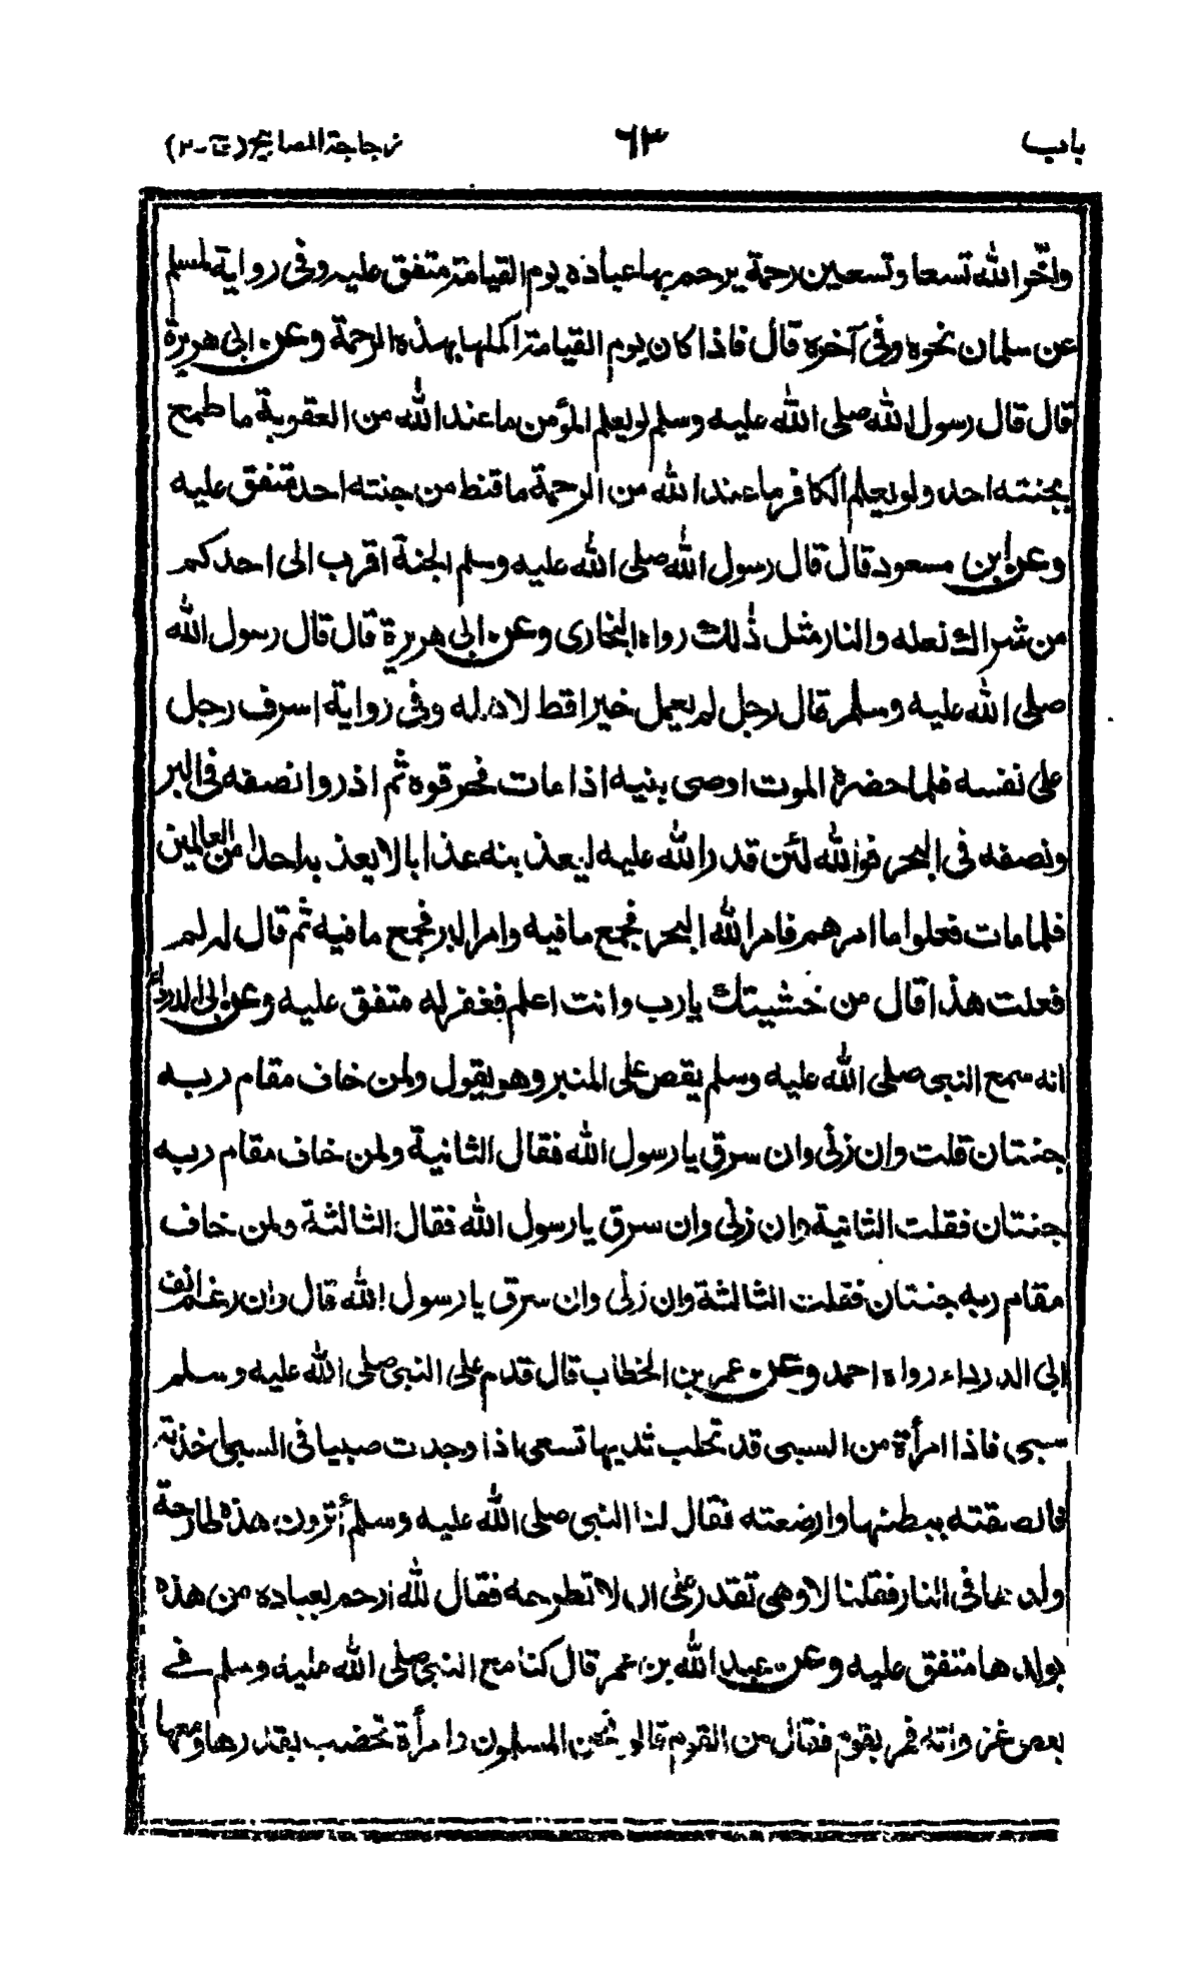 باب ٦٣ زجاجة المصابيح (ج-٢)
واخّر الله تسعا وتسعين رحمة يرحم بها عباده يوم القيامة متفق عليه وفى رواية لمسلم
عن سلمان نحوه وفى آخره قال فاذا كان يوم القيامة اكملها بهذه الرحمة وعن ابى هريرة
قال قال رسول الله صلى الله عليه وسلم لو يعلم المؤمن ما عند الله من العقوبة ما طمع
بجنته احد ولو يعلم الكافر ما عند الله من الرحمة ما قنط من جنته احد متفق عليه
وعن ابن مسعود قال قال رسول الله صلى الله عليه وسلم الجنة اقرب الى احدكم
من شراك نعله والنار مثل ذلك رواه البخارى وعن ابى هريرة قال قال رسول الله
صلى الله عليه وسلم قال رجل لم يعمل خيرا قط لاهله وفى رواية اسرف رجل
على نفسه فلما حضره الموت اوصى بنيه اذا مات فحرقوه ثم اذروا نصفه فى البر
ونصفه فى البحر فوالله لئن قدر الله عليه ليعذبنه عذابا لا يعذبه احدا من العالمين
فلما مات فعلوا ما امرهم فامر الله البحر فجمع ما فيه وامر البر فجمع ما فيه ثم قال له لم
فعلت هذا قال من خشيتك يا رب وانت اعلم فغفر له متفق عليه وعن ابى الدرداء
انه سمع النبى صلى الله عليه وسلم يقص على المنبر وهو يقول ولمن خاف مقام ربه
جنتان قلت وان زنى وان سرق يا رسول الله فقال الثانية ولمن خاف مقام ربه
جنتان فقلت الثانية وان زنى وان سرق يا رسول الله فقال الثالثة ولمن خاف
مقام ربه جنتان فقلت الثالثة وان زنى وان سرق يا رسول الله قال وان رغم انف
ابى الدرداء رواه احمد وعن عمر بن الخطاب قال قدم على النبى صلى الله عليه وسلم
سبى فاذا امرأة من السبى قد تحلب ثديها تسعى اذا وجدت صبيا فى السبى اخذته
فالصقته ببطنها وارضعته فقال لنا النبى صلى الله عليه وسلم أترون هذه طارحة
ولدها فى النار فقلنا لا وهى تقدر على ان لا تطرحه فقال لله ارحم بعباده من هذه
بولدها متفق عليه وعن عبد الله بن عمر قال كنا مع النبى صلى الله عليه وسلم فى
بعض غزواته فمر بقوم فقال من القوم قالوا نحن المسلمون وامرأة تحضب بقدرها ومعها